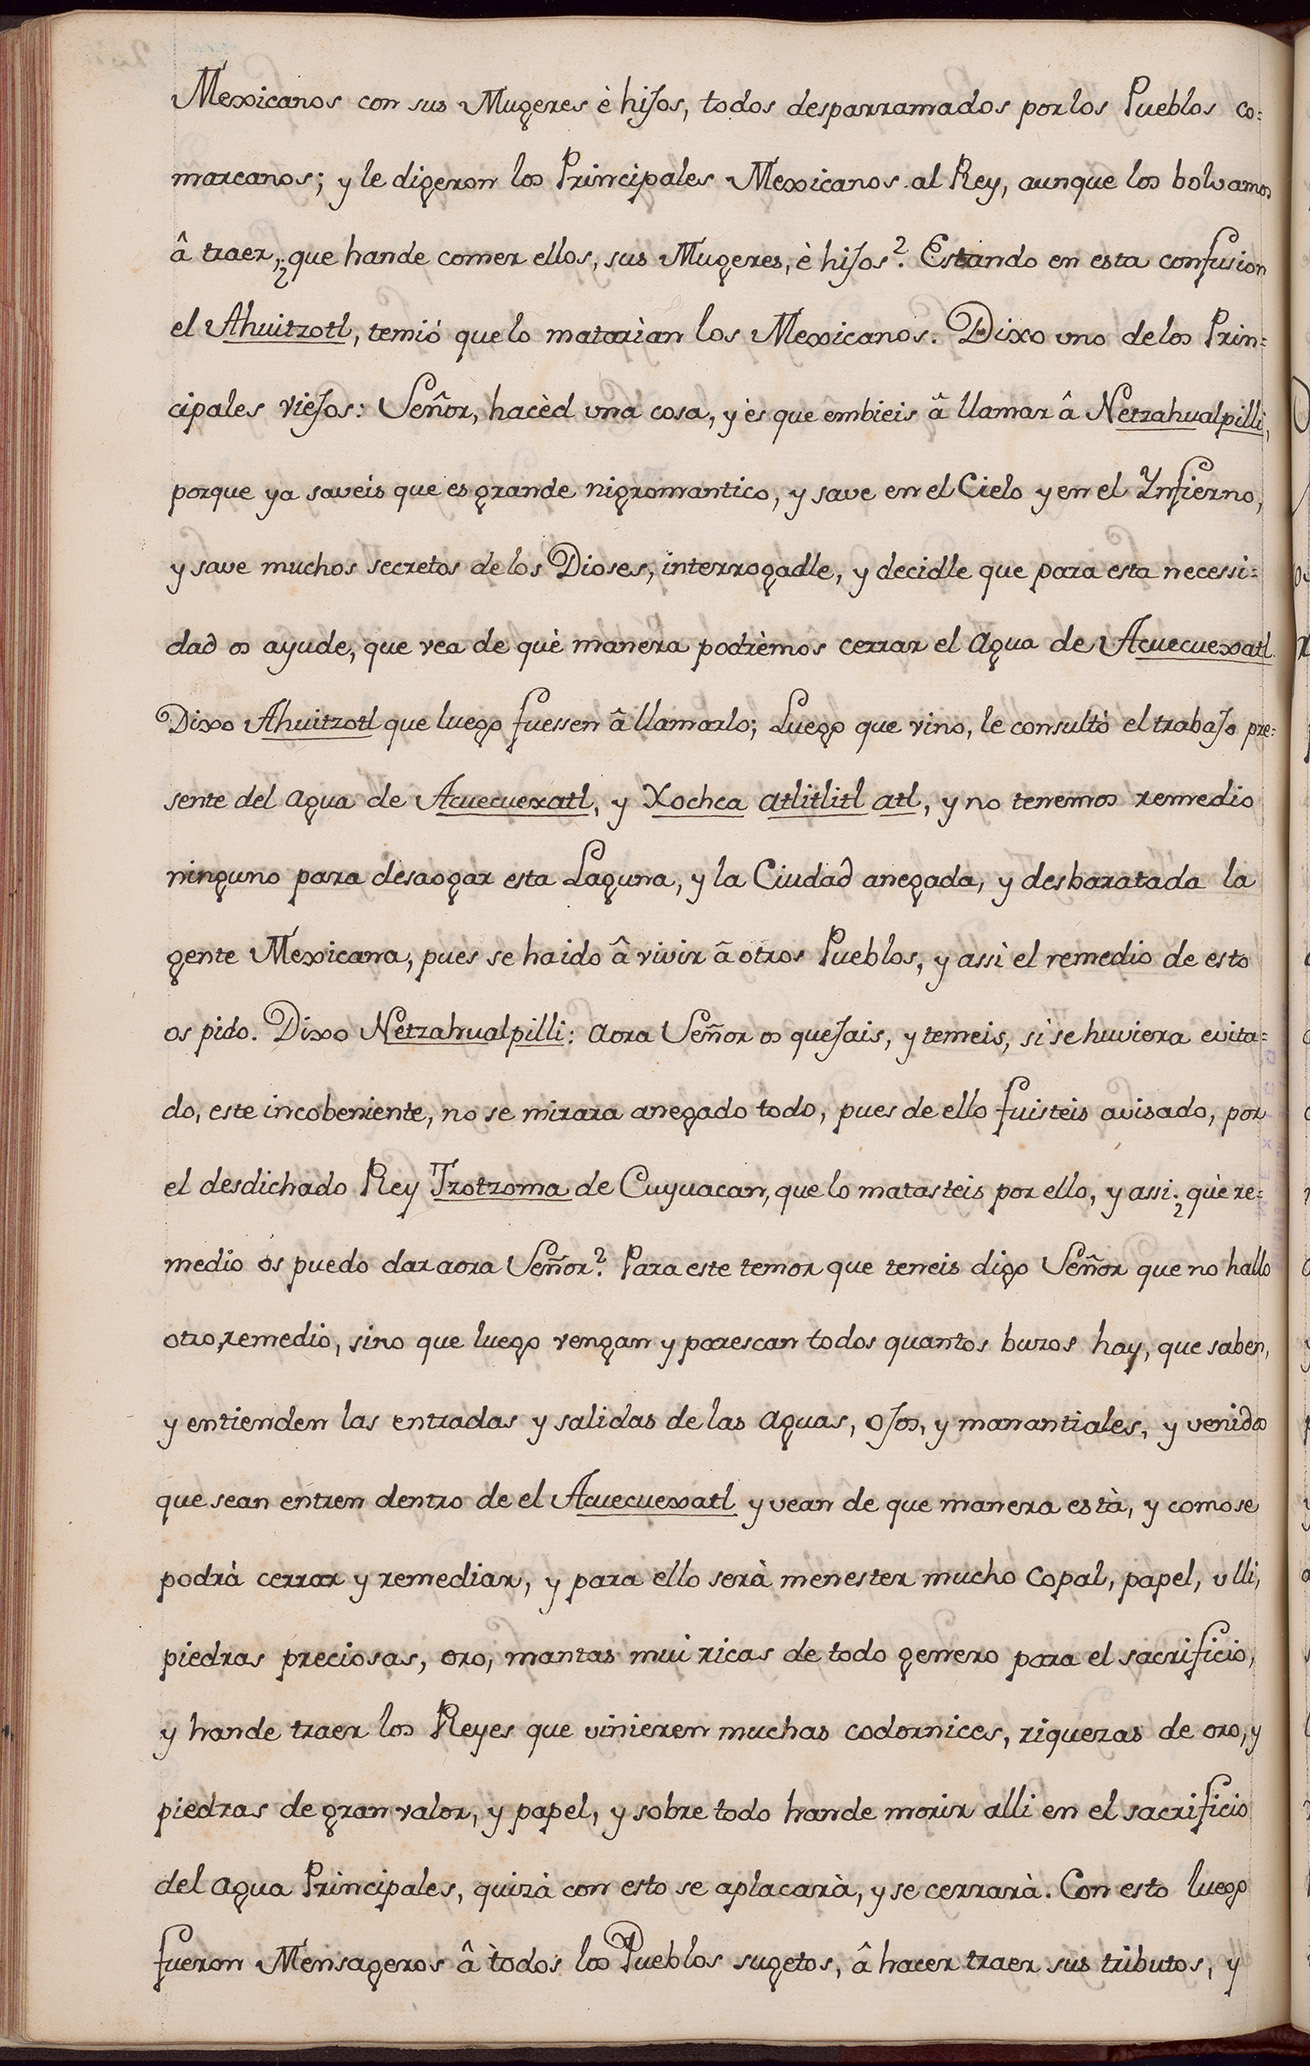 Mexicanos con sus Mugeres è hijos, todos desparramados por los Pueblos co=
marcanos; y le digeron los Principales Mexicanos al Rey, aunque los bolvamos
â traer, ¿que hande comer ellos, sus Mugeres, è hijos? Estando en esta confusion
el Ahuitzotl, temió que lo matarìan los Mexicanos. Dixo uno de los Prin=
cipales viejos: Señor, hacèd una cosa, y ès que embieis â llamar â Netzahualpilli,
porque ya saveis que es grande nigromantico, y save en el Cielo y en el Ynfierno,
y save muchos secretos de los Dioses, interrogadle, y decidle que para esta necessi=
dad os ayude, que vea de què manera podrèmos cerrar el agua de Acuecuexatl.
Dixo Ahuitzotl que luego fuessen â llamarlo; Luego que vino, le consultò el trabajo pre=
sente del agua de Acuecuexatl, y Xochca atlitlitl atl, y no tenemos remedio
ninguno para desaogar esta Laguna, y la Ciudad anegada, y desbaratada la
gente Mexicana, pues se ha ido â vivir â otros Pueblos, y assi el remedio de esto
os pido. Dixo Netzahualpilli: aora Señor os quejais, y temeis, si se huviera evita=
do, este incobeniente, no se mirara anegado todo, pues de ello fuisteis avisado, por
el desdichado Rey Tzotzoma de Cuyuacan, que lo matasteis por ello, y assi ¿ què re=
medio os puedo dar aora Señor? Para este temor que teneis digo Señor que no hallo
otro, remedio, sino que luego vengan y parescan todos quantos buzos hay, que saben,
y entienden las entradas y salidas de las aguas, ojos, y manantiales, y venidos
que sean entren dentro de el Acuecuexatl y vean de que manera està, y como se
podrà cerrar y remediar, y para ello serà menester mucho Copal, papel, ulli,
piedras preciosas, oro, mantas mui ricas de todo genero para el sacrificio,
y hande traer los Reyes que vinieren muchas codornices, riquezas de oro, y
piedras de gran valor, y papel, y sobre todo hande morir alli en el sacrificio
del agua Principales, quizà con esto se aplacarà, y se cerrarà. Con esto luego
fueron Mensageros â todos los Pueblos sugetos, â hacer traer sus tributos, y